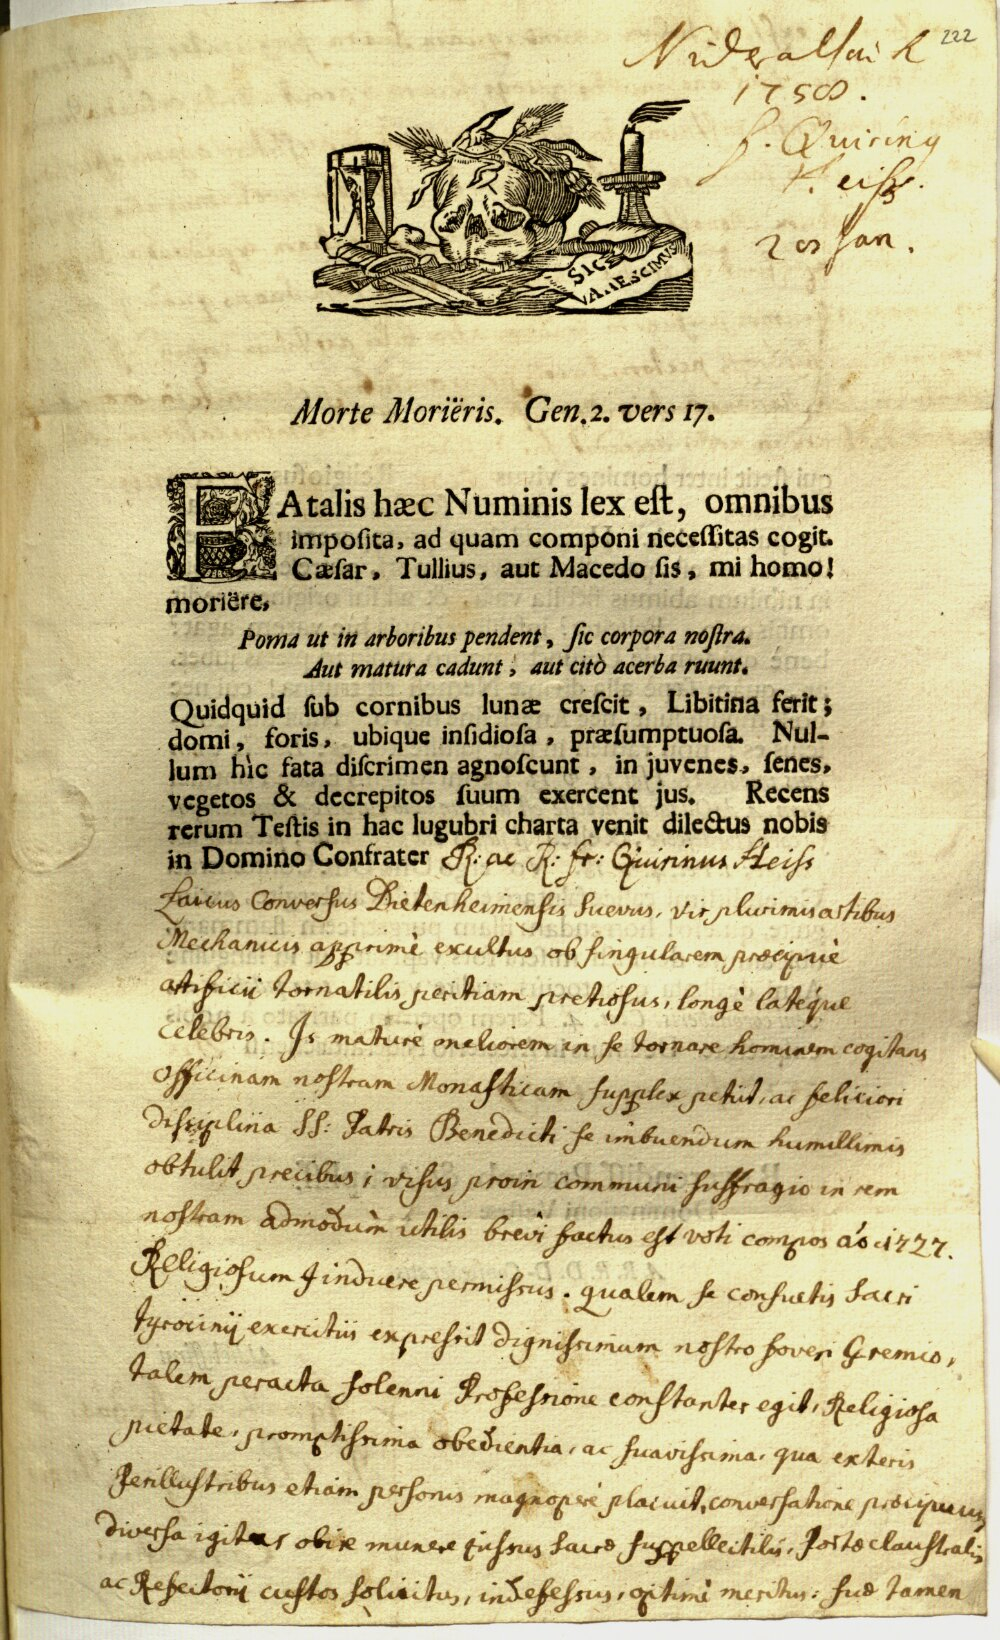 222
Nideraltaich
1758.
f. Quiring
Heiss.
20 Jan.
SIC
VANESCIMUS
Morte Moriëris. Gen. 2. vers 17.
FAtalis hæc Numinis lex est, omnibus
imposita, ad quam componi necessitas cogit.
Cæsar, Tullius, aut Macedo sis, mi homo!
moriëre,
Poma ut in arboribus pendent, sic corpora nostra.
Aut matura cadunt, aut citò acerba ruunt.
Quidquid sub cornibus lunæ crescit, Libitina ferit;
domi, foris, ubique insidiosa, præsumptuosa. Nul-
lum hìc fata discrimen agnoscunt, in juvenes, senes,
vegetos & decrepitos suum exercent jus. Recens
rerum Testis in hac lugubri charta venit dilectus nobis
in Domino Confrater R: ac R: fr: Quirinus Heiss
Laicus Conversus Dietenheimensis Suevus, vir plurimis artibus
Mechanicis apprimè excultus ob singularem præcipuè
artificii tornatilis peritiam pretiosus, longè latéque
celebris. Is maturè meliorem in se tornare hominem cogitans
officinam nostram Monasticam supplex petiit, ac feliciori
disciplina SS: Patris Benedicti se imbuendum humillimis
obtulit precibus; visus proin communi suffragio in rem
nostram admodùm utilis brevi factus est voti compos aō 1727.
Religiosum induere permissus. qualem se consuetis sacri
tyrocinij exercitiis expressit dignissimum nostro foveri Gremio,
talem peracta solenni Professione constanter egit, Religiosa
pietate, promptissima obedientia, ac suavissima, qua exteris
Perillustribus etiam personis magnoperè placuit, conversatione præcipuus,
diversa igitur obire munere jussus sacræ suppellectilis, Portæ claustralis
ac Refectorij custos solicitus, indefessus, optimè meritus: suæ tamen